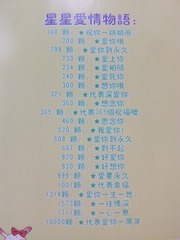 星星愛情物語:
顆 ★祝你一路順風
200 顆 ★愛你哦
299 顆 ★愛你到永久
230 顆 ★愛上你
234 顆 ★愛相隨
240 顆 ★愛死你
300 顆 ★想你哦
顆 ★代表深愛你
360 顆 ★想念你
365 顆 ★代表365個祝福哦
460 顆 ★思念你
520 顆 ★我愛你!
顆 ★愛你到永久
687 顆 ★對不起
920 顆 ★好愛你
930 顆 ★好想你
999 顆 ★愛要永久
1001 顆 ★代表幸福
1314 顆 ★愛你一生一世
1573 顆 ★一往情深
顆 ★一心一意
10000顆 ★代表愛你一萬年